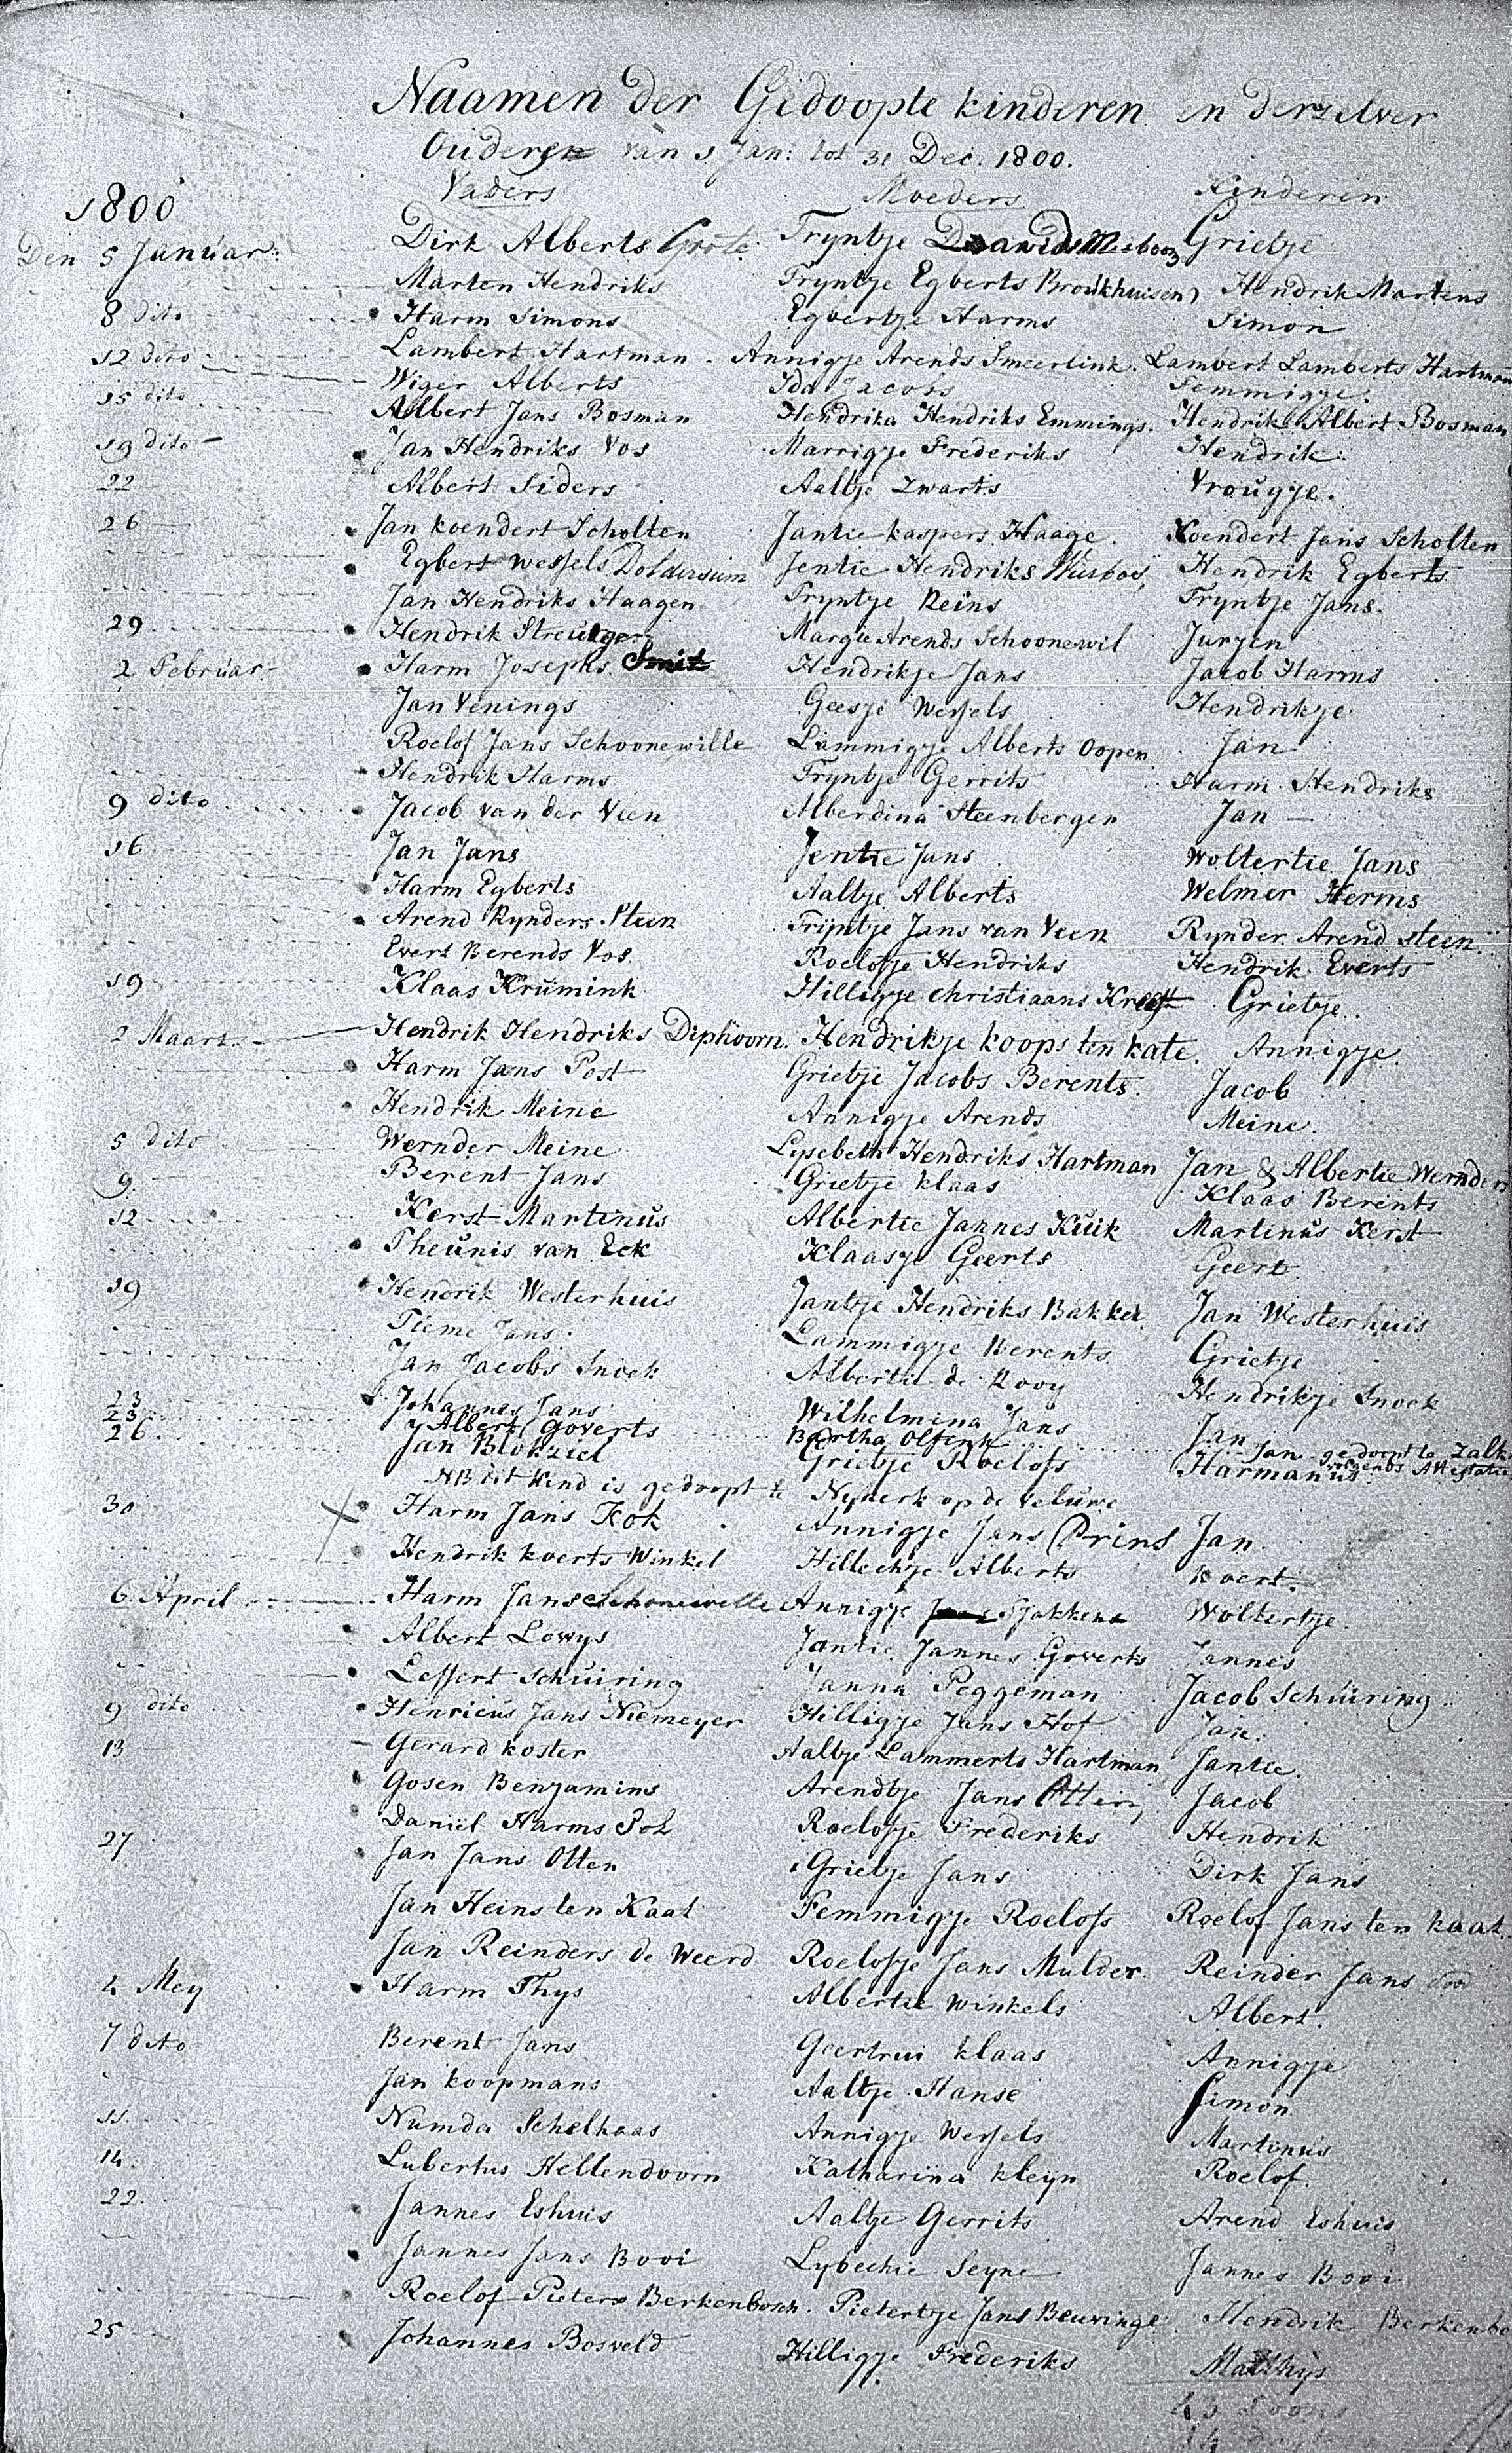 Naamen der Gedoopte kinderen en derzelver
Ouderen van 1 Jan: tot 31 Dec. 1800.
1800 Vaders Moeders Kinderen
Den 5 Januar: Dirk Alberts Grote Tryntje Grietje
Marten Hendriks Tryntje Egberts Broekhuisen Hendrik Martens
8 dito Harm Simons Egbertje Harms Simon
12 dito Lambert Hartman Annigje Arends Smeerlink. Lambert Lamberts Hartman
Wiger Alberts Ida Jacobs Femmigje.
15 dito Albert Jans Bosman Hendrika Hendriks Emmings. Hendrik Albert Bosman
19 dito Jan Hendriks Vos Marrigje Frederiks Hendrik
22 Albert Siders Aaltje Zwarts Vrougje.
26 Jan koendert Scholten Jantie kaspers Haage. Koendert Jans Scholten
Egbert Wessels Doldersum Jentie Hendriks Hendrik Egberts
Jan Hendriks Haagen Tryntje Reins Tryntje Jans.
29 Hendrik Streutger Margie Arends Schoonewil Jurjen
2 Februar: Harm Josephs Smit Hendrikje Jans Jacob Harms
Jan Venings Geesje Wessels Hendrikje
Roelof Jans Schoonewille Lammigje Alberts Oopen Jan
Hendrik Harms Tryntje Gerrits Harm Hendriks
9 dito Jacob van der Veen Alberdina Steenbergen Jan
16 Jan Jans Jentie Jans Woltertie Jans
Harm Egberts Aaltje Alberts Welmer Herms
Arend Rynders Steen Trijntje Jans van Veen Rynder Arend steen
Evert Berends Vos. Roelofje Hendriks Hendrik Everts
19 Klaas Krümink Hilligje christiaans Grietje.
2 Maart Hendrik Hendriks Diphoorn. Hendrikje koops ten kate. Annigje
Harm Jans Post Grietje Jacobs Berents. Jacob
Hendrik Meine Annigje Arends Meine.
5 dito Wernder Meine Lysebeth Hendriks Hartman Jan & Albertie Wernders
9 Berent Jans Grietje klaas Klaas Berents
12 Kerst Martinus Albertie Jannes Kuik Martinus Kerst
Theunis van Eck Klaasje Geerts Geert
19 Hendrik Westerhuis Jantje Hendriks Bakker Jan Westerhuis
Tieme Jans Lammigje Berents Grietje
Jan Jacobs Snoek Albertie de Rooy Hendrikje Snoek
23 Johannes Jans Wilhelmina Jans Jan
23 Albert Goverts Bartha Jan gedoopt te Zalk
volgends Attestatie
26 Jan Blokziel Grietje Roelofs Harmanus
NB dit kind is gedoopt te Nykerk op de veluwe
30 Harm Jans Kok Annigje Jans Prins Jan
Hendrik koerts Winkel Hillechje Alberts koert.
6 April Harm Jans Schonewille Annigje Sjakkens Woltertje.
Albert Lowys Jantie Jannes Goverts Jannes
Leffert Schuiring Janna Peggeman Jacob Schuiring
9 dito Henricus Jans Niemeyer Hilligje Jans Hof Jan.
13 Gerard koster Aaltje Lammerts Hartman Jantie.
Gosen Benjamins Arendtje Jans Jacob
Daniël Harms Pol Roelofje Frederiks Hendrik
27 Jan Jans Otten Grietje Jans Dirk Jans
Jan Heins ten Kaat Femmigje Roelofs Roelof Jans ten kaat.
Jan Reinders de Weerd Roelofje Jans Mulder. Reinder Jans
4 Mey Harm Thys Albertie Winkels Albert.
7 dito Berent Jans Geertrui klaas Annigje
Jan koopmans Aaltje Hanse Simon
11 Numda Schelhaas Annigje Wessels Martinus
14. Lubertus Hellendoorn Katharina kleyn Roelof.
22. Jannes Eshuis Aaltje Gerrits Arend Eshuis
Jannes Jans Booi Lybechie Seyne Jannes Booi
Roelof Pieters Berkenbosch. Pietertje Jans Beuvinge Hendrik Berkenbo
25 Johannes Bosveld Hilligje Frederiks Matthys
43 Zoons
14